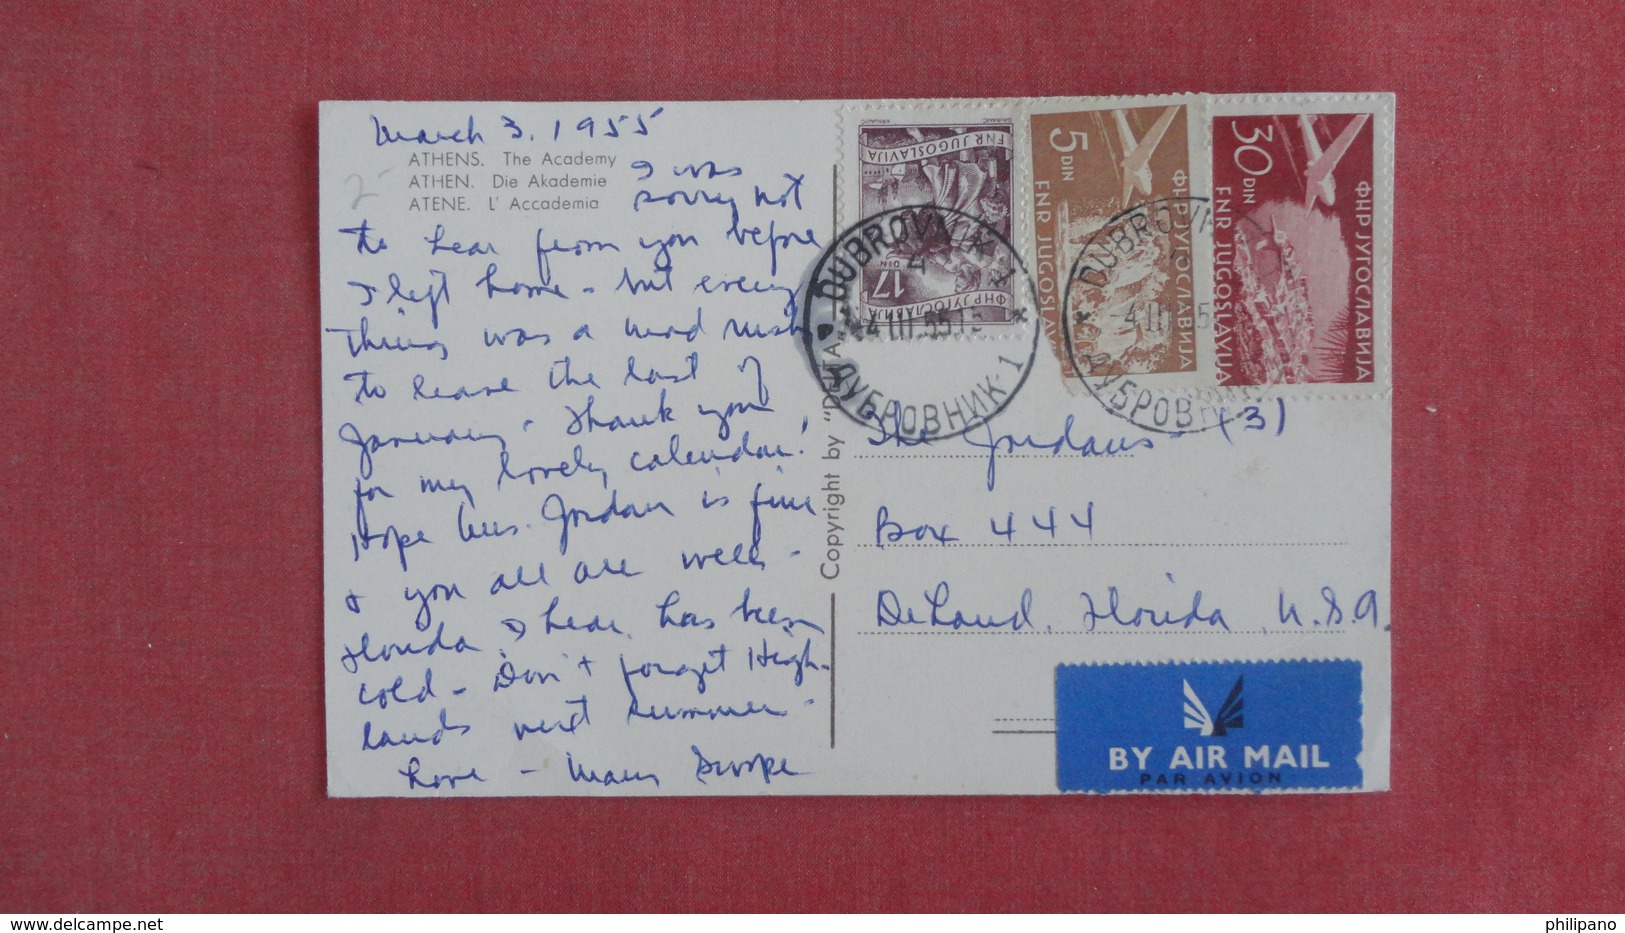 March 3. 1955
ATHENS. The Academy
ATHEN. Die Akademie
ATENE. L' Accademia
I was
sorry not
to hear from you before
I left home - but every
thing was a mad rush
to leave the last of
January. Thank you
for my lovely calendar!
Hope Mrs. Jordan is fine
& you all are well -
Florida I hear has been
cold - Don't forget High-
lands next summer -
Love - Mary
Copyright by "DELTA
FNR JUGOSLAVIJA
17 DIN
ФНР ЈУГОСЛАВИЈА
5 DIN
FNR JUGOSLAVIJA
ФНР ЈУГОСЛАВИЈА
30 DIN
FNR JUGOSLAVIJA
ФНР ЈУГОСЛАВИЈА
DUBROVNIK 1
-4 III 55 15
ДУБРОВНИК 1
DUBROVN
-4 III 55
ДУБРОВН
The Jordans - (3)
Box 444
DeLand, Florida, U.S.A.
BY AIR MAIL
PAR AVION
delcampe.net
philipano